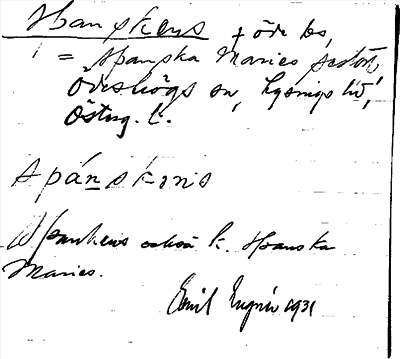 Spanskens, öde ls,
= Spanska Maries
Ödeshögs sn, Lysings hd,
Österg. l.
spánskɘns
Spankens också k. Spanska
Maries.
Emil 1931